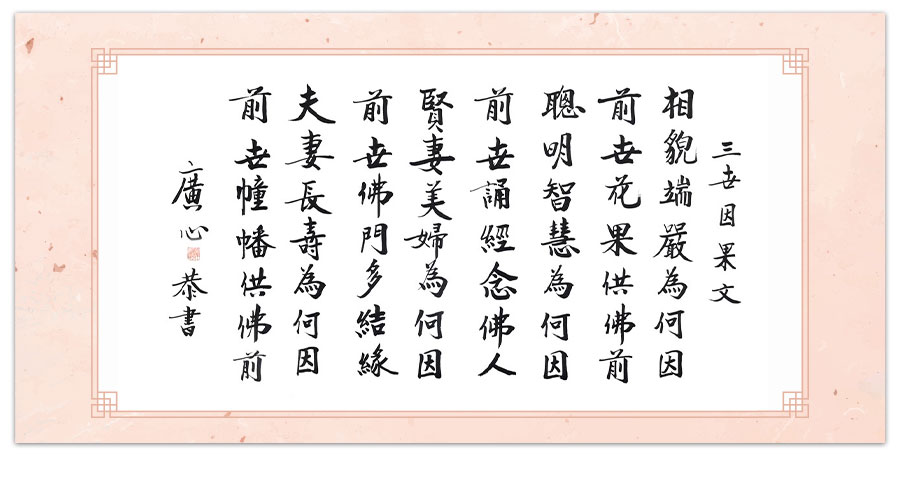 三世因果文
相貌端嚴為何因
前世花果供佛前
聰明智慧為何因
前世誦經念佛人
賢妻美婦為何因
前世佛門多結緣
夫妻長壽為何因
前世幢幡供佛前
廣心恭書